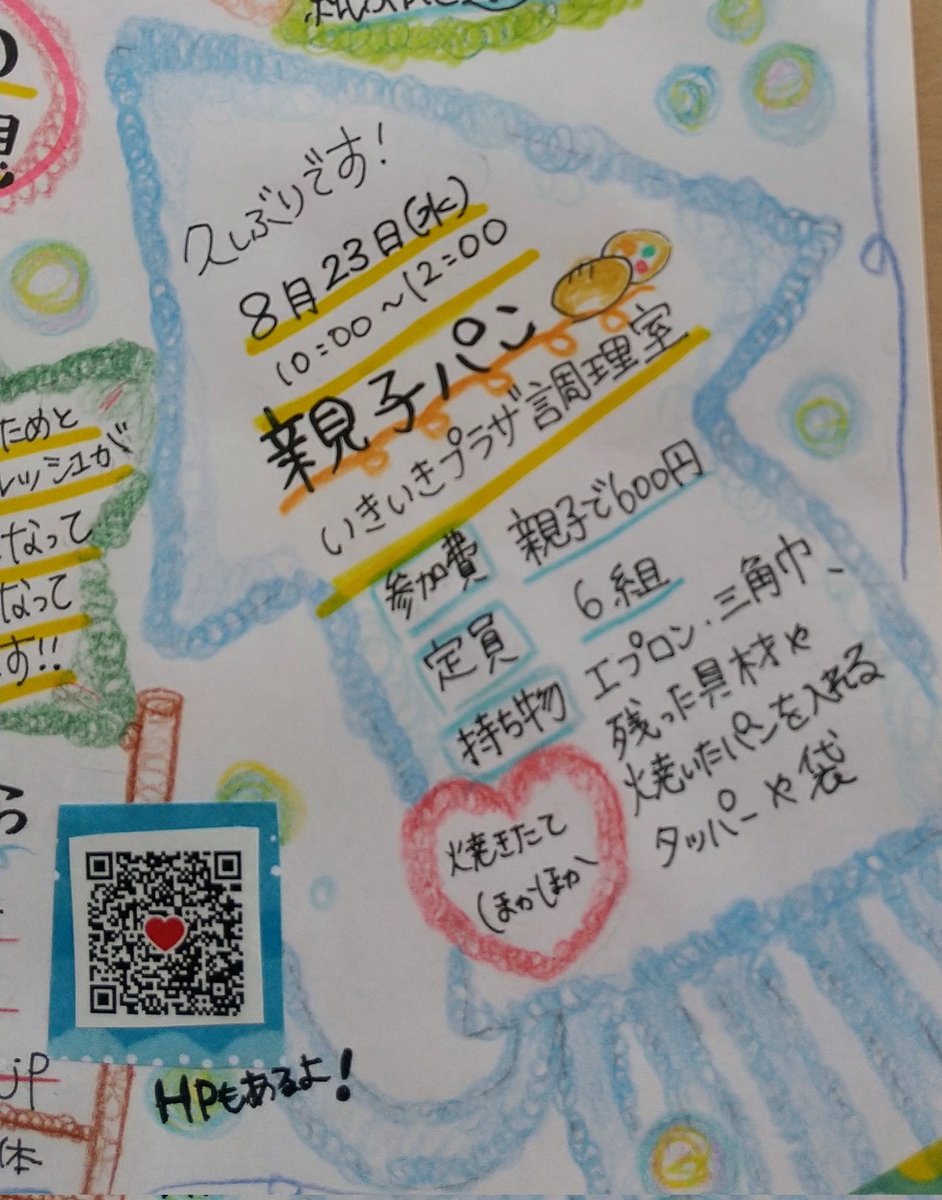 久しぶりです!
8月23日(水)
10:00~12:00
親子パン
いきいきプラザ調理室
参加費 親子で600円
定員 6組
持ち物 エプロン・三角巾、
残った具材や
焼いたパンを入れる
タッパーや袋
焼きたて
ほかほか
ためと
レッシュが
なって
なって
す!!
HPもあるよ!
jp
体